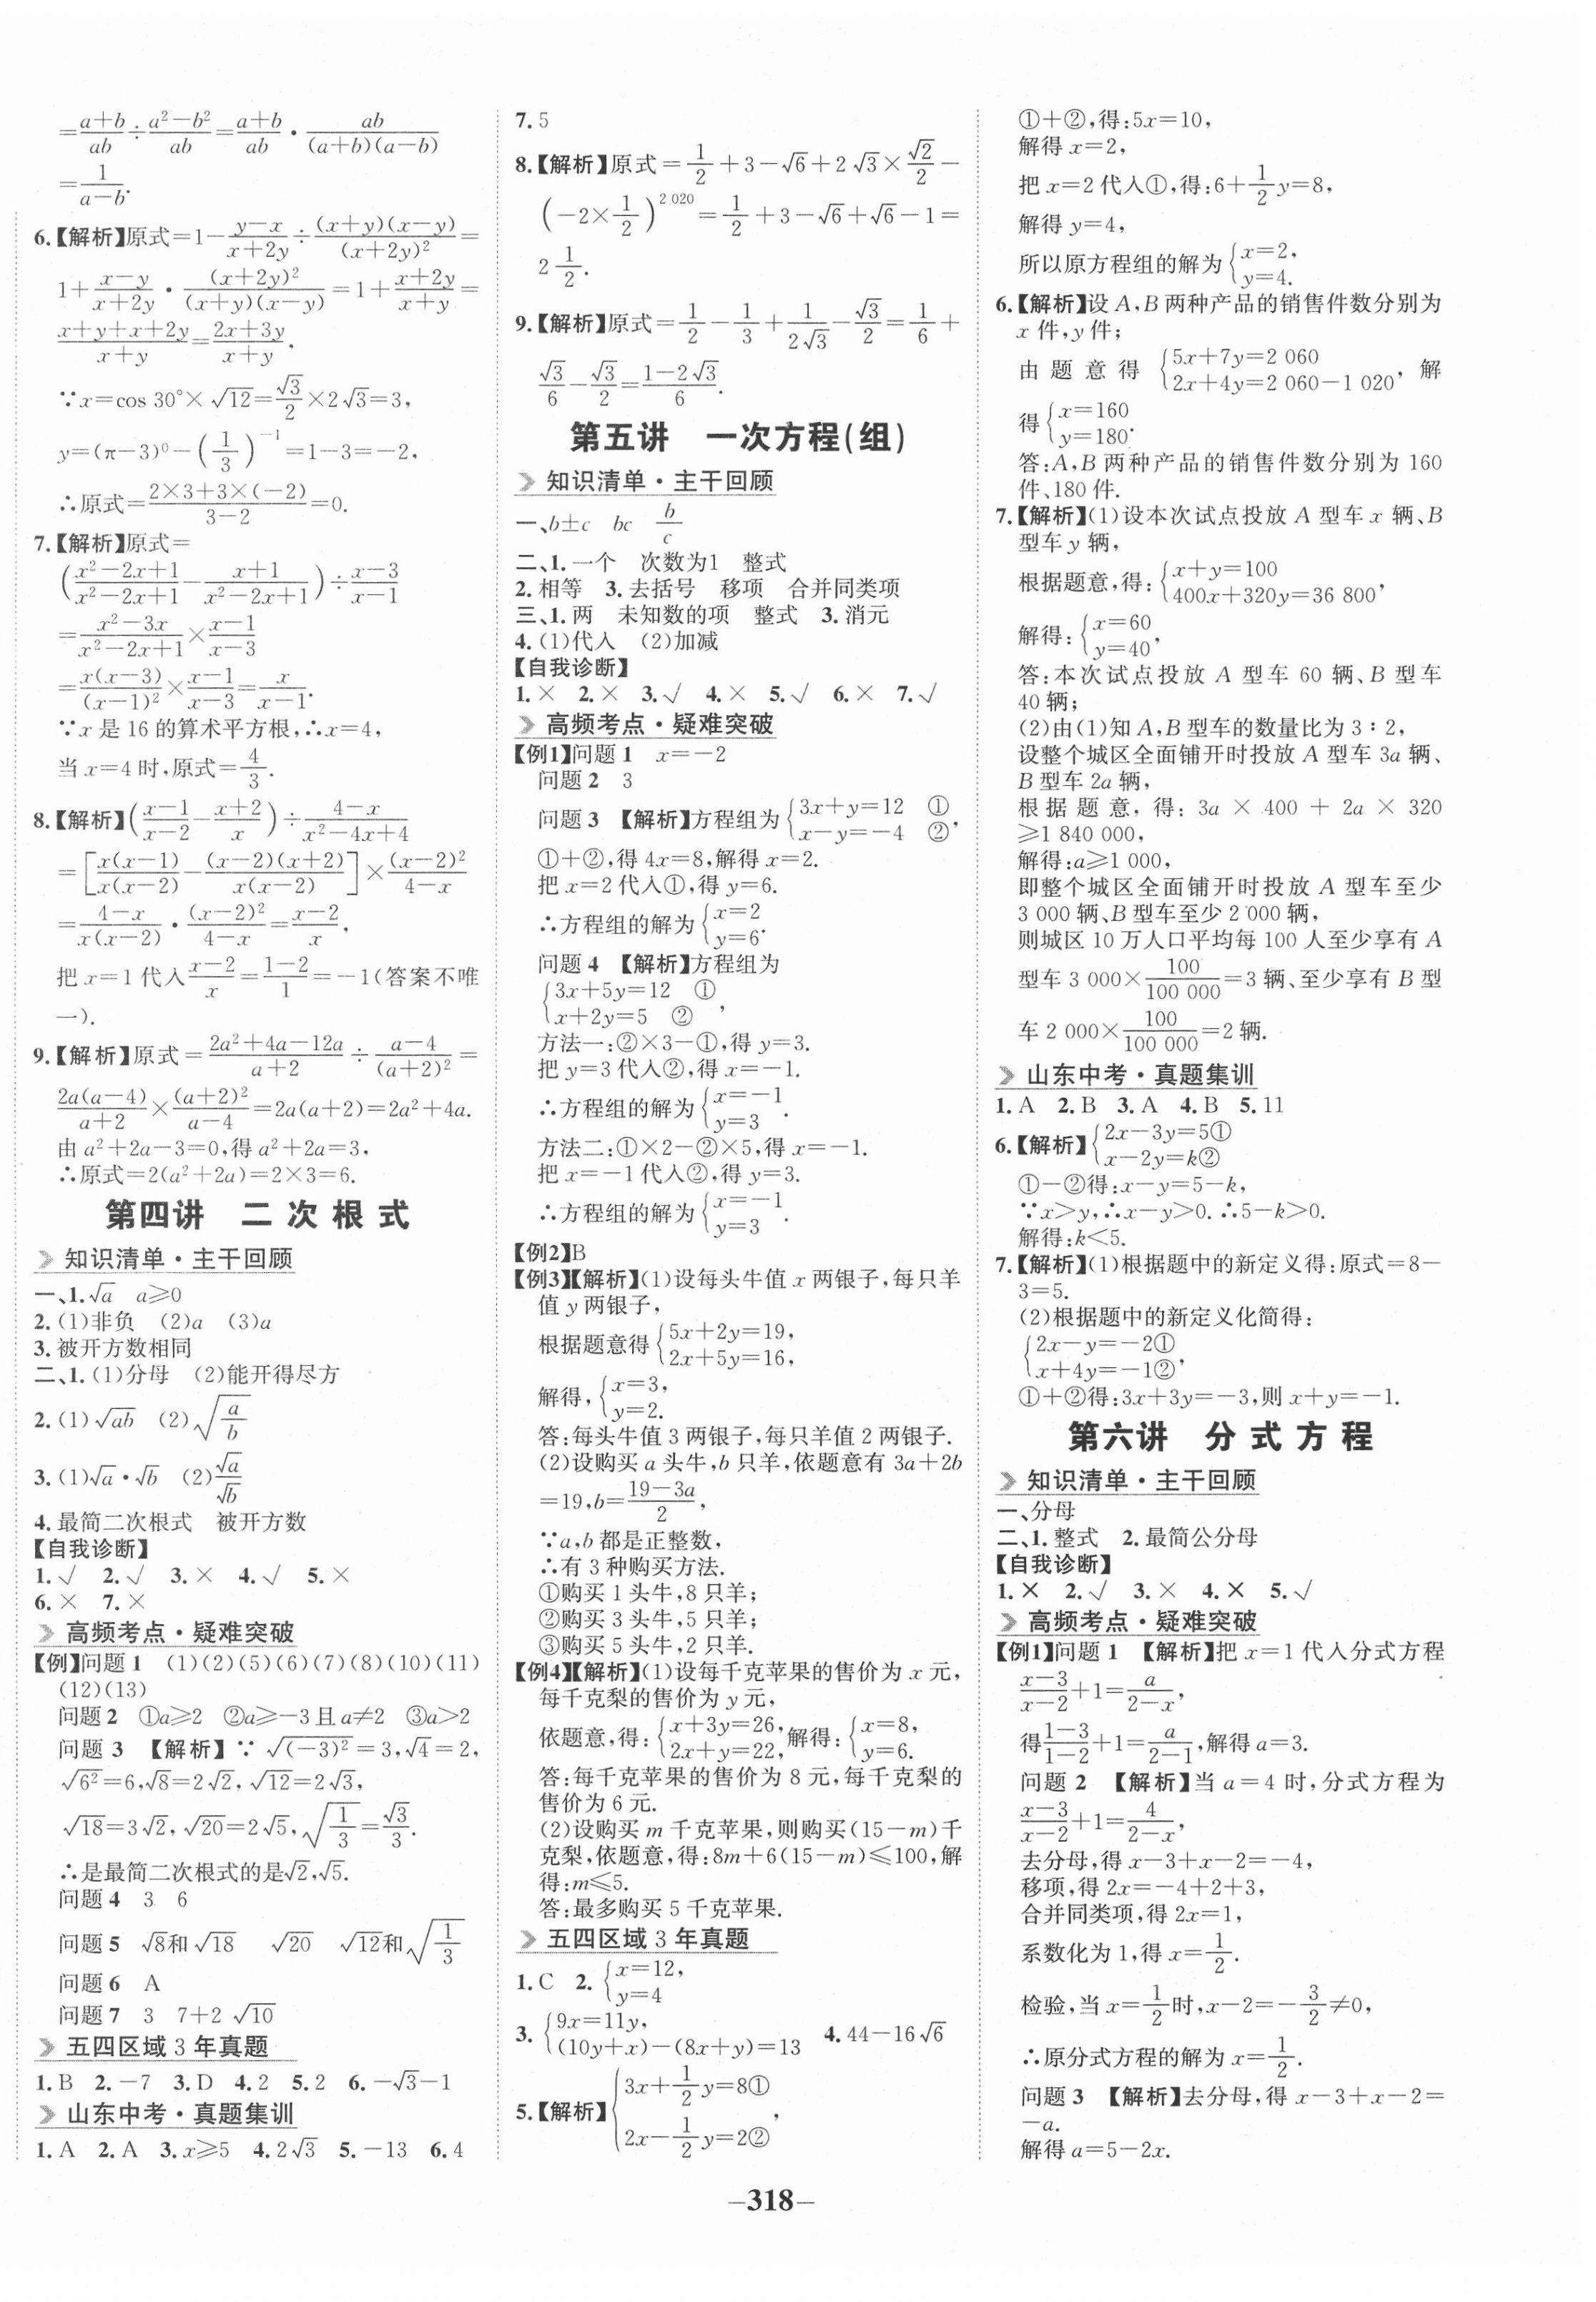 =\frac{a+b}{ab}÷\frac{a²-b²}{ab}=\frac{a+b}{ab}·\frac{ab}{(a+b)(a-b)}
=\frac{1}{a-b}.
6.【解析】原式=1-\frac{y-x}{x+2y}÷\frac{(x+y)(x-y)}{(x+2y)²}=
1+\frac{x-y}{x+2y}·\frac{(x+2y)²}{(x+y)(x-y)}=1+\frac{x+2y}{x+y}=
\frac{x+y+x+2y}{x+y}=\frac{2x+3y}{x+y}.
∵x=cos 30°×√12=\frac{√3}{2}×2√3=3,
y=(π-3)⁰-(\frac{1}{3})^{-1}=1-3=-2,
∴原式=\frac{2×3+3×(-2)}{3-2}=0.
7.【解析】原式=
(\frac{x²-2x+1}{x²-2x+1}-\frac{x+1}{x²-2x+1})÷\frac{x-3}{x-1}
=\frac{x²-3x}{x²-2x+1}×\frac{x-1}{x-3}
=\frac{x(x-3)}{(x-1)²}×\frac{x-1}{x-3}=\frac{x}{x-1}.
∵x是16的算术平方根,∴x=4,
当x=4时,原式=\frac{4}{3}.
8.【解析】(\frac{x-1}{x-2}-\frac{x+2}{x})÷\frac{4-x}{x²-4x+4}
=[\frac{x(x-1)}{x(x-2)}-\frac{(x-2)(x+2)}{x(x-2)}]×\frac{(x-2)²}{4-x}
=\frac{4-x}{x(x-2)}·\frac{(x-2)²}{4-x}=\frac{x-2}{x},
把x=1代入\frac{x-2}{x}=\frac{1-2}{1}=-1(答案不唯
一).
9.【解析】原式=\frac{2a²+4a-12a}{a+2}÷\frac{a-4}{(a+2)²}=
\frac{2a(a-4)}{a+2}×\frac{(a+2)²}{a-4}=2a(a+2)=2a²+4a.
由a²+2a-3=0,得a²+2a=3,
∴原式=2(a²+2a)=2×3=6.
第四讲 二次根式
知识清单·主干回顾
一、1.√a a≥0
2.(1)非负 (2)a (3)a
3.被开方数相同
二、1.(1)分母 (2)能开得尽方
2.(1)√ab (2)\sqrt{\frac{a}{b}}
3.(1)√a·√b (2)\frac{√a}{√b}
4.最简二次根式 被开方数
【自我诊断】
1.√ 2.√ 3.× 4.√ 5.×
6.× 7.×
高频考点·疑难突破
【例】问题1 (1)(2)(5)(6)(7)(8)(10)(11)
(12)(13)
问题2 ①a≥2 ②a≥-3且a≠2 ③a>2
问题3 【解析】∵\sqrt{(-3)²}=3,√4=2,
\sqrt{6²}=6,√8=2√2,√12=2√3,
√18=3√2,√20=2√5,\sqrt{\frac{1}{3}}=\frac{√3}{3}.
∴是最简二次根式的是√2,√5.
问题4 3 6
问题5 √8和√18 √20 √12和\sqrt{\frac{1}{3}}
问题6 A
问题7 3 7+2√10
五四区域3年真题
1.B 2.-7 3.D 4.2 5.2 6.-√3-1
山东中考·真题集训
1.A 2.A 3.x≥5 4.2√3 5.-13 6.4
7.5
8.【解析】原式=\frac{1}{2}+3-√6+2√3×\frac{√2}{2}-
(-2×\frac{1}{2})^{2 020}=\frac{1}{2}+3-√6+√6-1=
2\frac{1}{2}.
9.【解析】原式=\frac{1}{2}-\frac{1}{3}+\frac{1}{2√3}-\frac{√3}{2}=\frac{1}{6}+
\frac{√3}{6}-\frac{√3}{2}=\frac{1-2√3}{6}.
第五讲 一次方程(组)
知识清单·主干回顾
一、b±c bc \frac{b}{c}
二、1.一个 次数为1 整式
2.相等 3.去括号 移项 合并同类项
三、1.两 未知数的项 整式 3.消元
4.(1)代入 (2)加减
【自我诊断】
1.× 2.× 3.√ 4.× 5.√ 6.× 7.√
高频考点·疑难突破
【例1】问题1 x=-2
问题2 3
问题3 【解析】方程组为{3x+y=12 ①
x-y=-4 ②,
①+②,得4x=8,解得x=2.
把x=2代入①,得y=6.
∴方程组的解为{x=2
y=6.
问题4 【解析】方程组为
{3x+5y=12 ①
x+2y=5 ②,
方法一:②×3-①,得y=3.
把y=3代入②,得x=-1.
∴方程组的解为{x=-1
y=3.
方法二:①×2-②×5,得x=-1.
把x=-1代入②,得y=3.
∴方程组的解为{x=-1
y=3.
【例2】B
【例3】【解析】(1)设每头牛值x两银子,每只羊
值y两银子,
根据题意得{5x+2y=19,
2x+5y=16,
解得,{x=3,
y=2.
答:每头牛值3两银子,每只羊值2两银子.
(2)设购买a头牛,b只羊,依题意有3a+2b
=19,b=\frac{19-3a}{2},
∵a,b都是正整数,
∴有3种购买方法.
①购买1头牛,8只羊;
②购买3头牛,5只羊;
③购买5头牛,2只羊.
【例4】【解析】(1)设每千克苹果的售价为x元,
每千克梨的售价为y元,
依题意,得:{x+3y=26,
2x+y=22,解得:{x=8,
y=6.
答:每千克苹果的售价为8元,每千克梨的
售价为6元.
(2)设购买m千克苹果,则购买(15-m)千
克梨,依题意,得:8m+6(15-m)≤100,解
得:m≤5.
答:最多购买5千克苹果.
五四区域3年真题
1.C 2.{x=12,
y=4
3.{9x=11y,
(10y+x)-(8x+y)=13 4.44-16√6
5.【解析】{3x+\frac{1}{2}y=8①
2x-\frac{1}{2}y=2②,
①+②,得:5x=10,
解得x=2,
把x=2代入①,得:6+\frac{1}{2}y=8,
解得y=4,
所以原方程组的解为{x=2,
y=4.
6.【解析】设A,B两种产品的销售件数分别为
x件,y件;
由题意得{5x+7y=2 060
2x+4y=2 060-1 020,解
得{x=160
y=180.
答:A,B两种产品的销售件数分别为160
件、180件.
7.【解析】(1)设本次试点投放A型车x辆、B
型车y辆,
根据题意,得:{x+y=100
400x+320y=36 800,
解得:{x=60
y=40,
答:本次试点投放A型车60辆、B型车
40辆;
(2)由(1)知A,B型车的数量比为3∶2,
设整个城区全面铺开时投放A型车3a辆、
B型车2a辆,
根据题意,得:3a×400+2a×320
≥1 840 000,
解得:a≥1 000,
即整个城区全面铺开时投放A型车至少
3 000辆、B型车至少2 000辆,
则城区10万人口平均每100人至少享有A
型车3 000×\frac{100}{100 000}=3辆、至少享有B型
车2 000×\frac{100}{100 000}=2辆.
山东中考·真题集训
1.A 2.B 3.A 4.B 5.11
6.【解析】{2x-3y=5①
x-2y=k②
①-②得:x-y=5-k,
∵x>y,∴x-y>0.∴5-k>0.
解得:k<5.
7.【解析】(1)根据题中的新定义得:原式=8-
3=5.
(2)根据题中的新定义化简得:
{2x-y=-2①
x+4y=-1②,
①+②得:3x+3y=-3,则x+y=-1.
第六讲 分式方程
知识清单·主干回顾
一、分母
二、1.整式 2.最简公分母
【自我诊断】
1.× 2.√ 3.× 4.× 5.√
高频考点·疑难突破
【例1】问题1 【解析】把x=1代入分式方程
\frac{x-3}{x-2}+1=\frac{a}{2-x},
得\frac{1-3}{1-2}+1=\frac{a}{2-1},解得a=3.
问题2 【解析】当a=4时,分式方程为
\frac{x-3}{x-2}+1=\frac{4}{2-x},
去分母,得x-3+x-2=-4,
移项,得2x=-4+2+3,
合并同类项,得2x=1,
系数化为1,得x=\frac{1}{2}.
检验,当x=\frac{1}{2}时,x-2=-\frac{3}{2}≠0,
∴原分式方程的解为x=\frac{1}{2}.
问题3 【解析】去分母,得x-3+x-2=
-a.
解得a=5-2x.
-318-